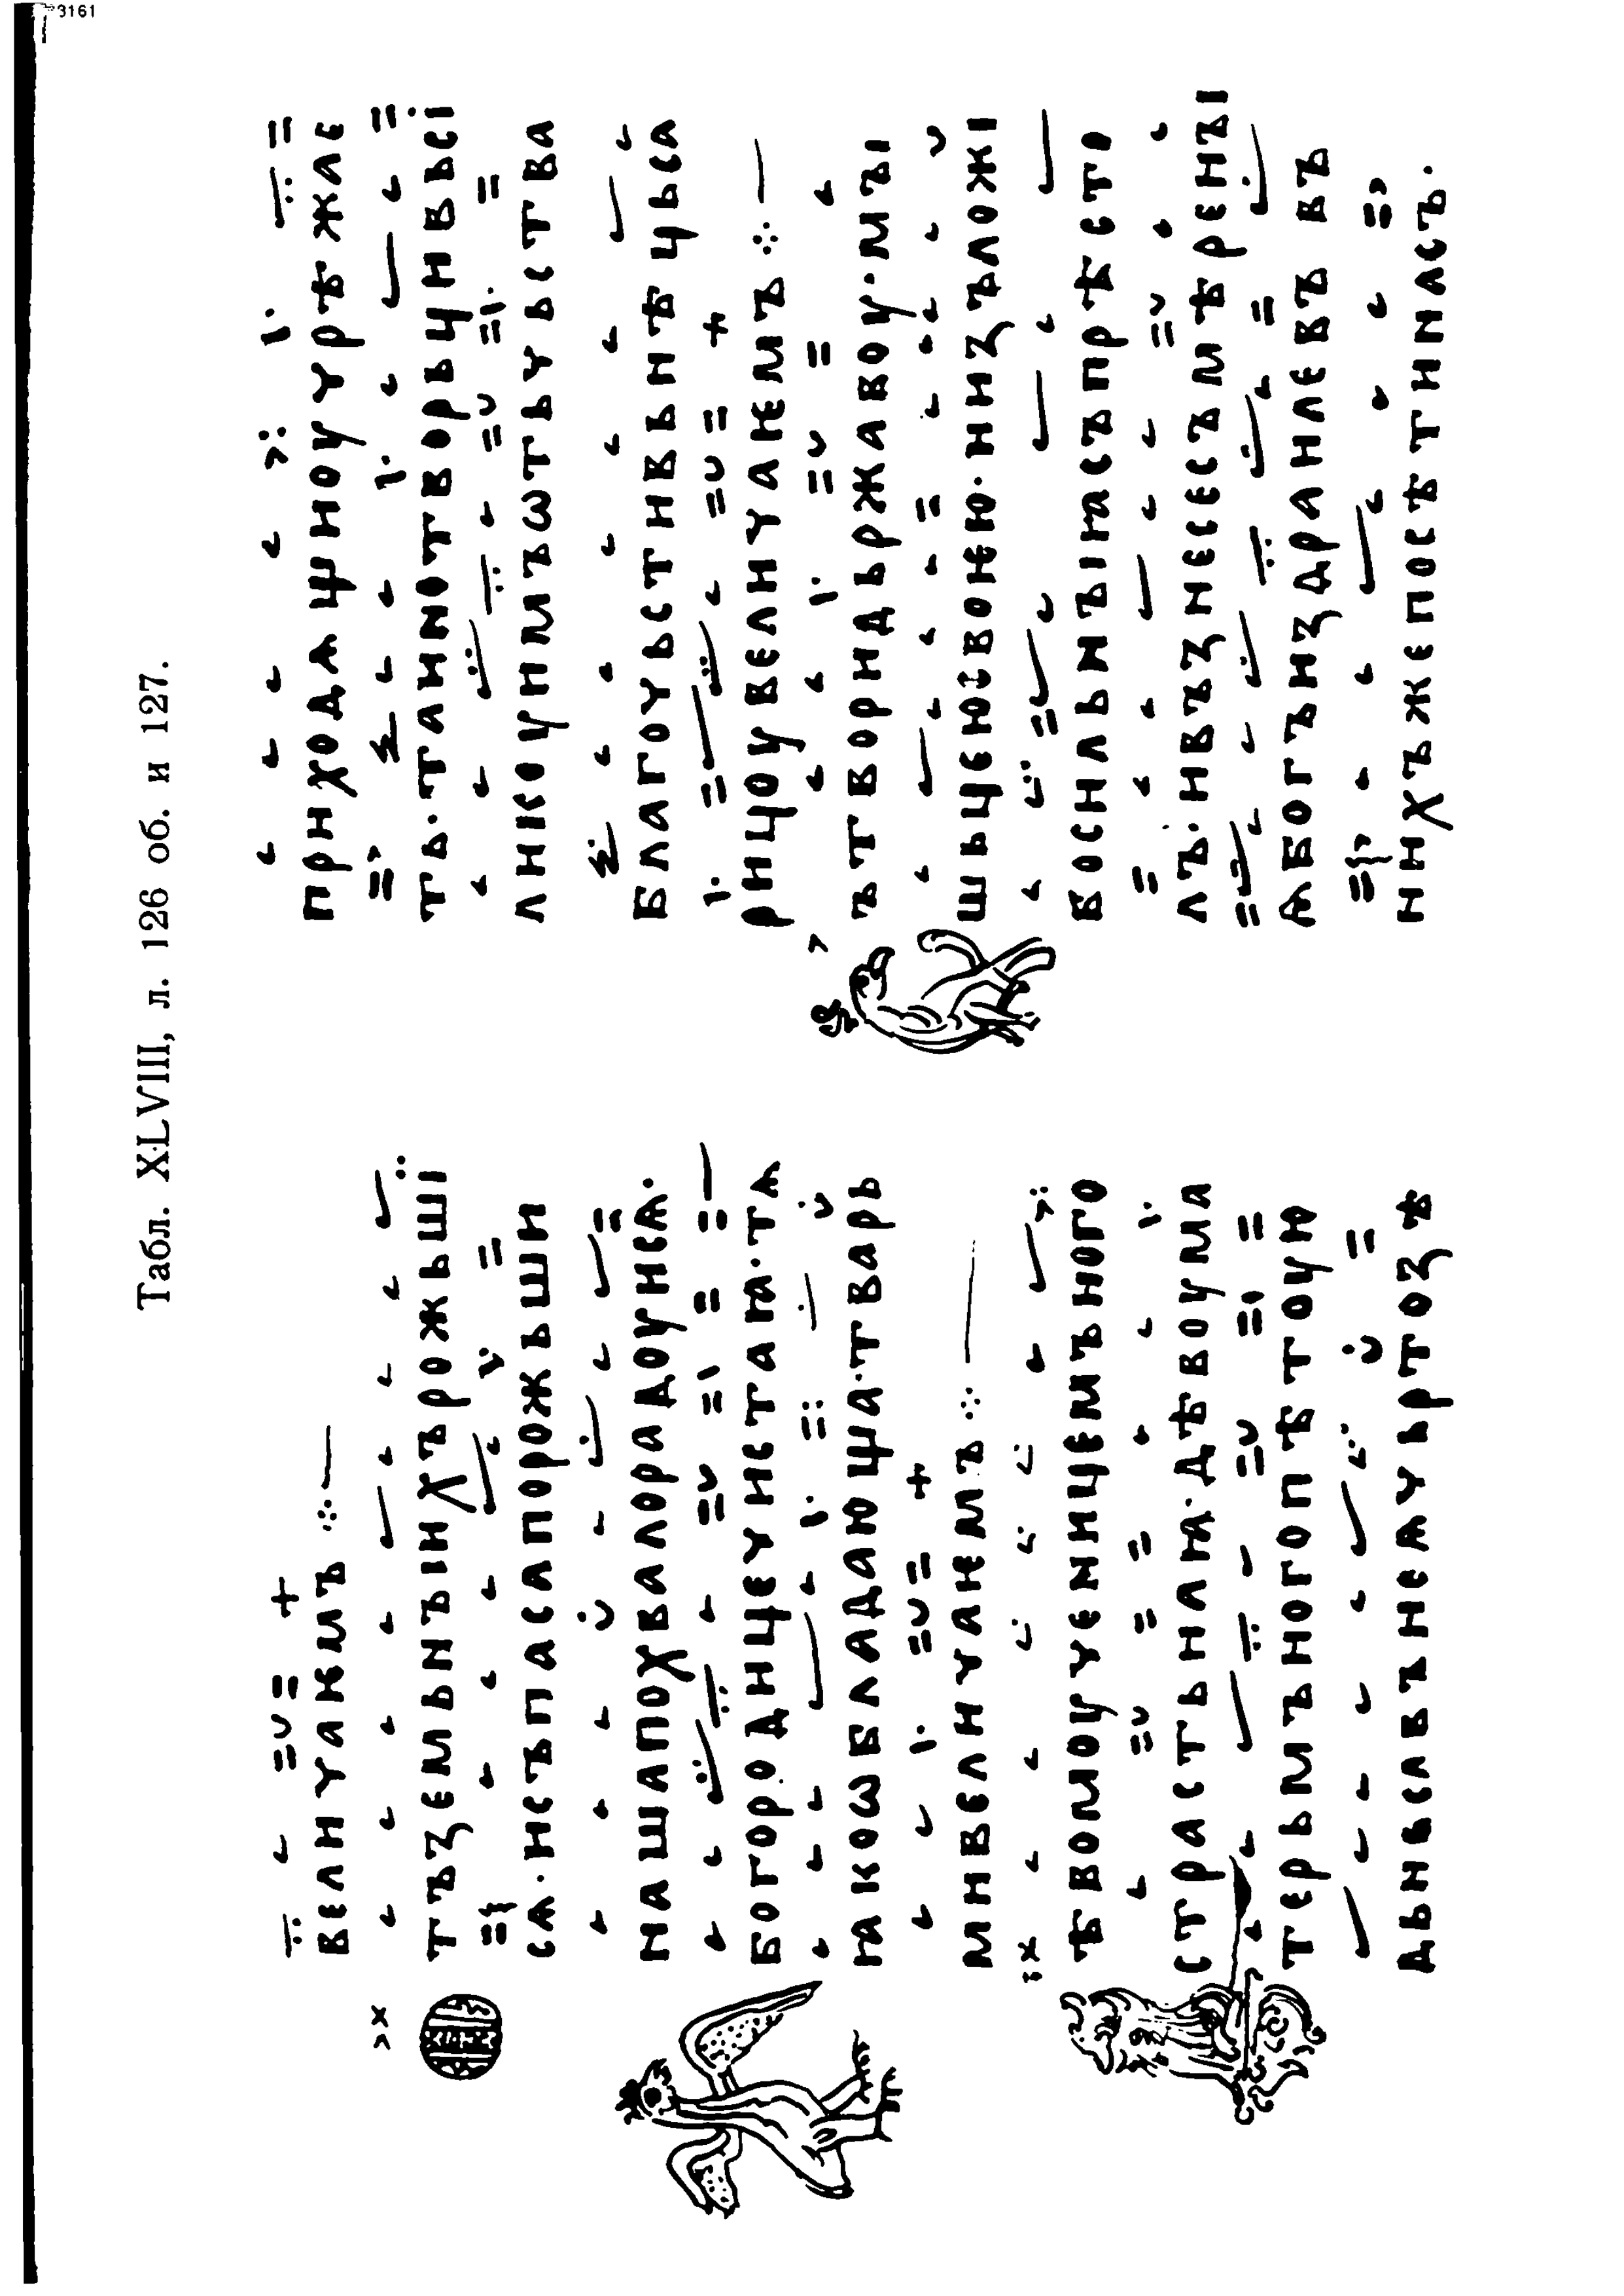 3161
Табл. XLVIII, л. 126 об. и 127.
величаѥмъ ⁘—
тъземьныихърожьші
сѧ·исъпасапорожьши
нашапохвалорадоуисѧ·
богородицечистаꙗ·тѧ
ꙗкоѡбладающа·тварь
мивеличаѥмъ ⁘—
ѣвомоученицемъного
страстьнаꙗ·дѣвоума
терьмъногопѣтоую
дьньсьвънеѧчьртозѣ
приходѧщиоучрѣжає
ть·таинотворьцивьсі
ликоуимъѡтьчьства
благочьстивьнѣцьса
рицоувеличаѥмъ ⁘—
ътворидьржавоу·мы
шьцеюсвоѥю·низъложі
восильныꙗсъпрѣсто
лъ·ивъзнесесъмѣрены
ѩбогъиздраилевъвъ
нихъжепосѣтинасъ·